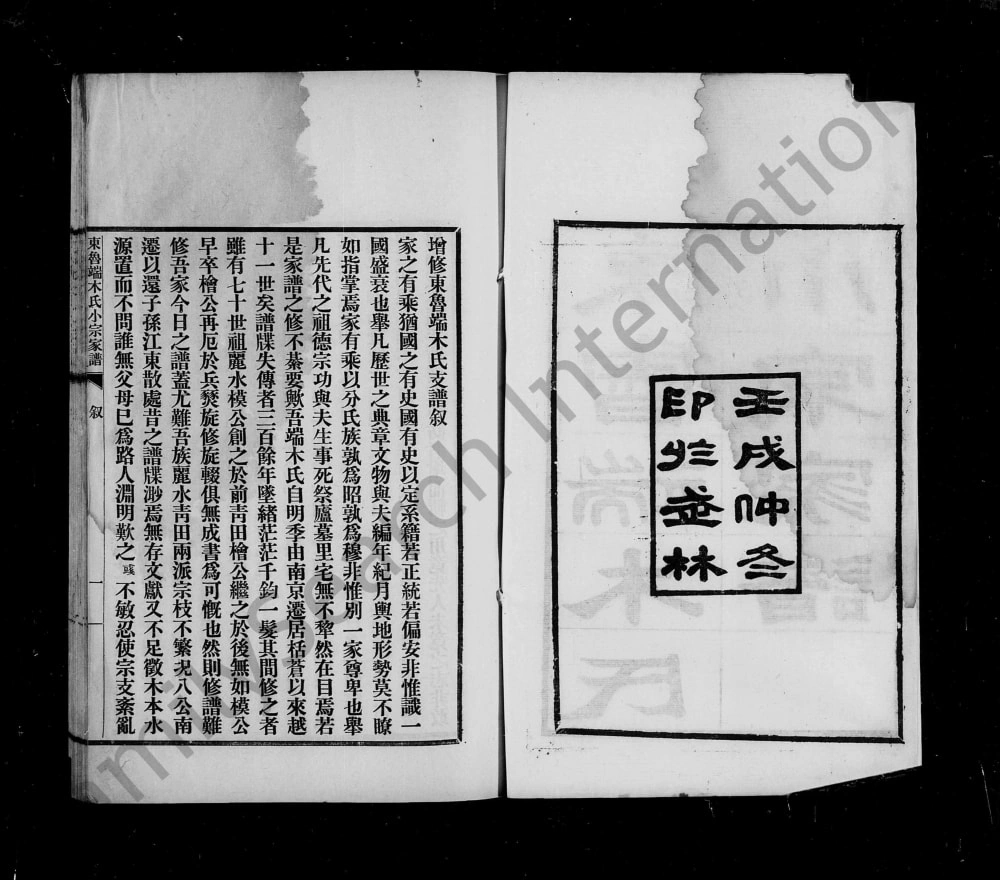 壬戌仲冬
印於武林
增修東魯端木氏支譜叙
家之有乘猶國之有史國有史以定系籍若正統若偏安非惟識一
國盛衰也舉凡歷世之典章文物與夫編年紀月輿地形勢莫不瞭
如指掌焉家有乘以分氏族孰爲昭孰爲穆非惟別一家尊卑也舉
凡先代之祖德宗功與夫生事死祭廬墓里宅無不犂然在目焉若
是家譜之修不綦要歟吾端木氏自明季由南京遷居栝蒼以來越
十一世矣譜牒失傳者三百餘年墜緒茫茫千鈞一髮其間修之者
雖有七十世祖麗水模公創之於前靑田檜公繼之於後無如模公
早卒檜公再厄於兵燹旋修旋輟俱無成書爲可慨也然則修譜難
修吾家今日之譜蓋尤難吾族麗水靑田兩派宗枝不繁況八公南
遷以還子孫江東散處昔之譜牒渺焉無存文獻又不足徵木本水
源置而不問誰無父母已爲路人淵明歎之彧不敏忍使宗支紊亂
東魯端木氏小宗家譜
叙
一
FamilySearch International